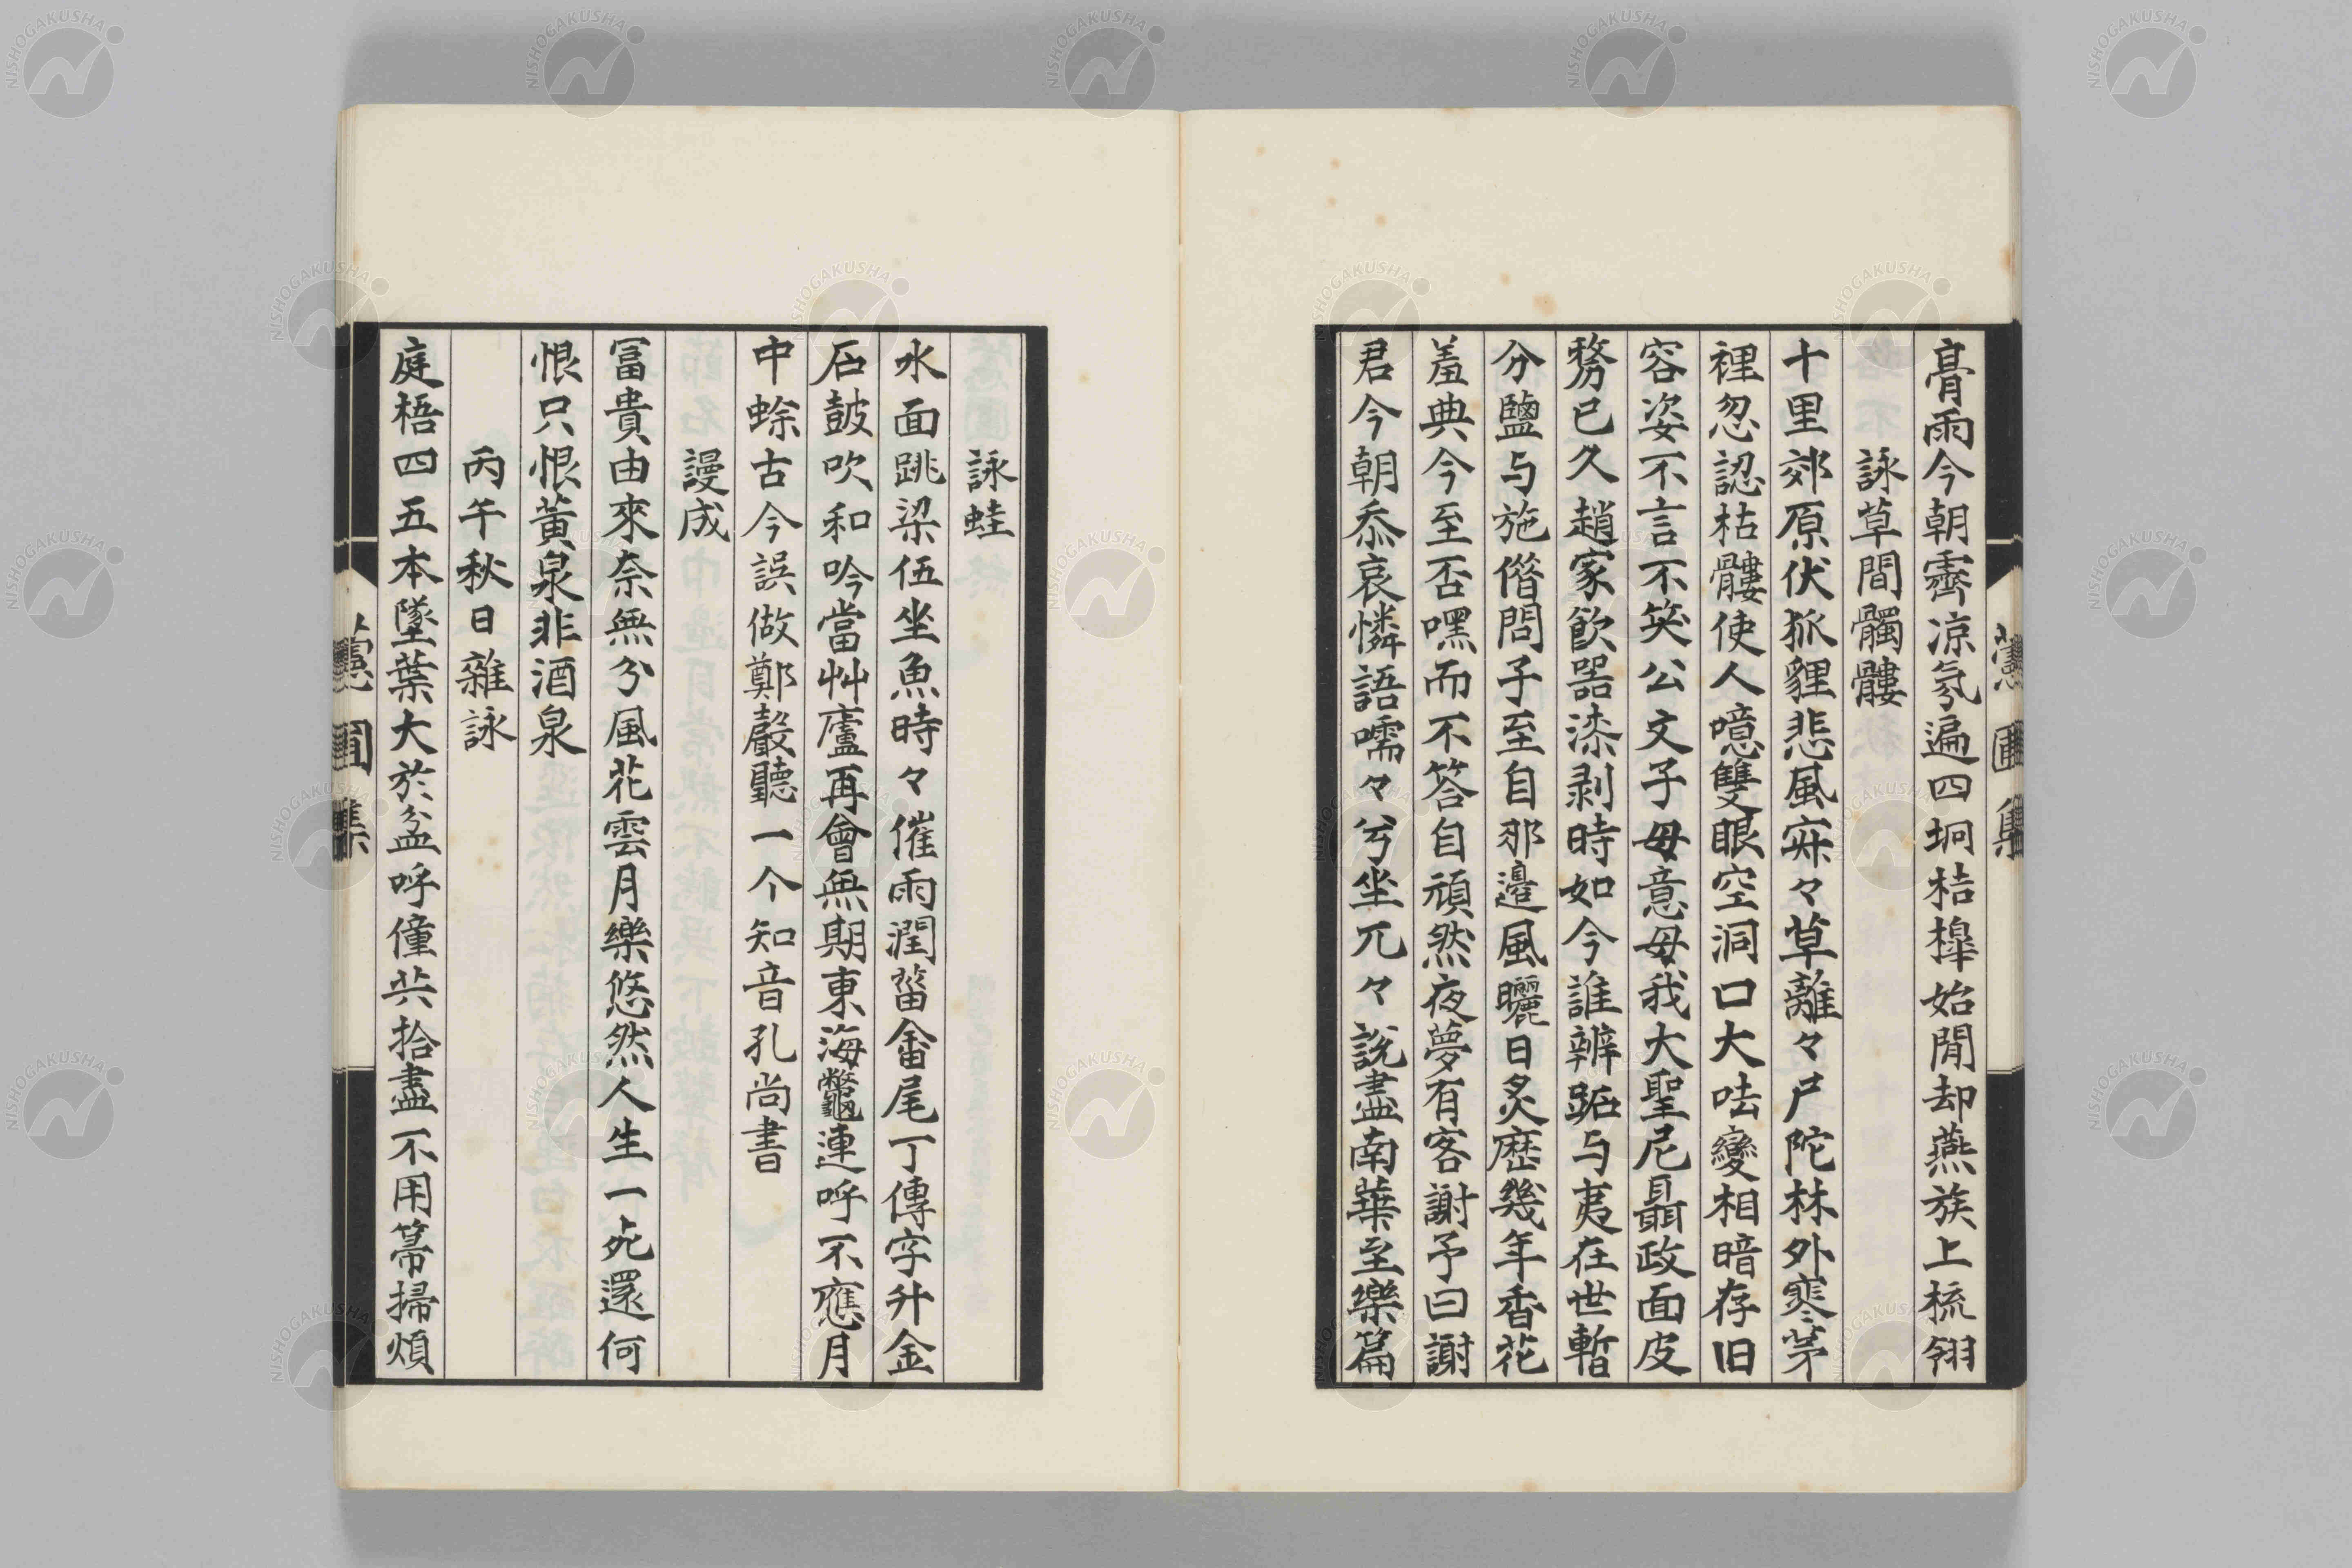 膏雨今朝霽凉氛遍四坰桔槹始閒却燕族上梳翎
詠草間髑髏
十里郊原伏狐貍悲風寐々草離々尸陀林外寒茅
裡忽認枯髏使人噫雙眼空洞口大呿變相暗存旧
容姿不言不笑公文子毋意毋我大聖尼聶政面皮
務已久趙家飲器漆剥時如今誰辨跖与夷在世暫
分鹽与施僭問子至自那邉風曬日炙歴幾年香花
羞典今至否嘿而不答自頑然夜夢有客謝予曰謝
君今朝忝哀憐語嚅々兮坐兀々說盡南華至樂篇
詠蛙
水面跳梁伍坐魚時々催雨潤菑畬尾丁傳字升金
石鼓吹和吟當艸廬再會無期東海鼈連呼不應月
中蜍古今誤做鄭嚴聽一个知音孔尚書
謾成
冨貴由來奈無分風花雲月樂悠然人生一死還何
恨只恨黃泉非酒泉
丙午秋日雜詠
庭梧四五本墜葉大於盆呼僮共拾盡不用箒掃煩
NISHOGAKUSHA